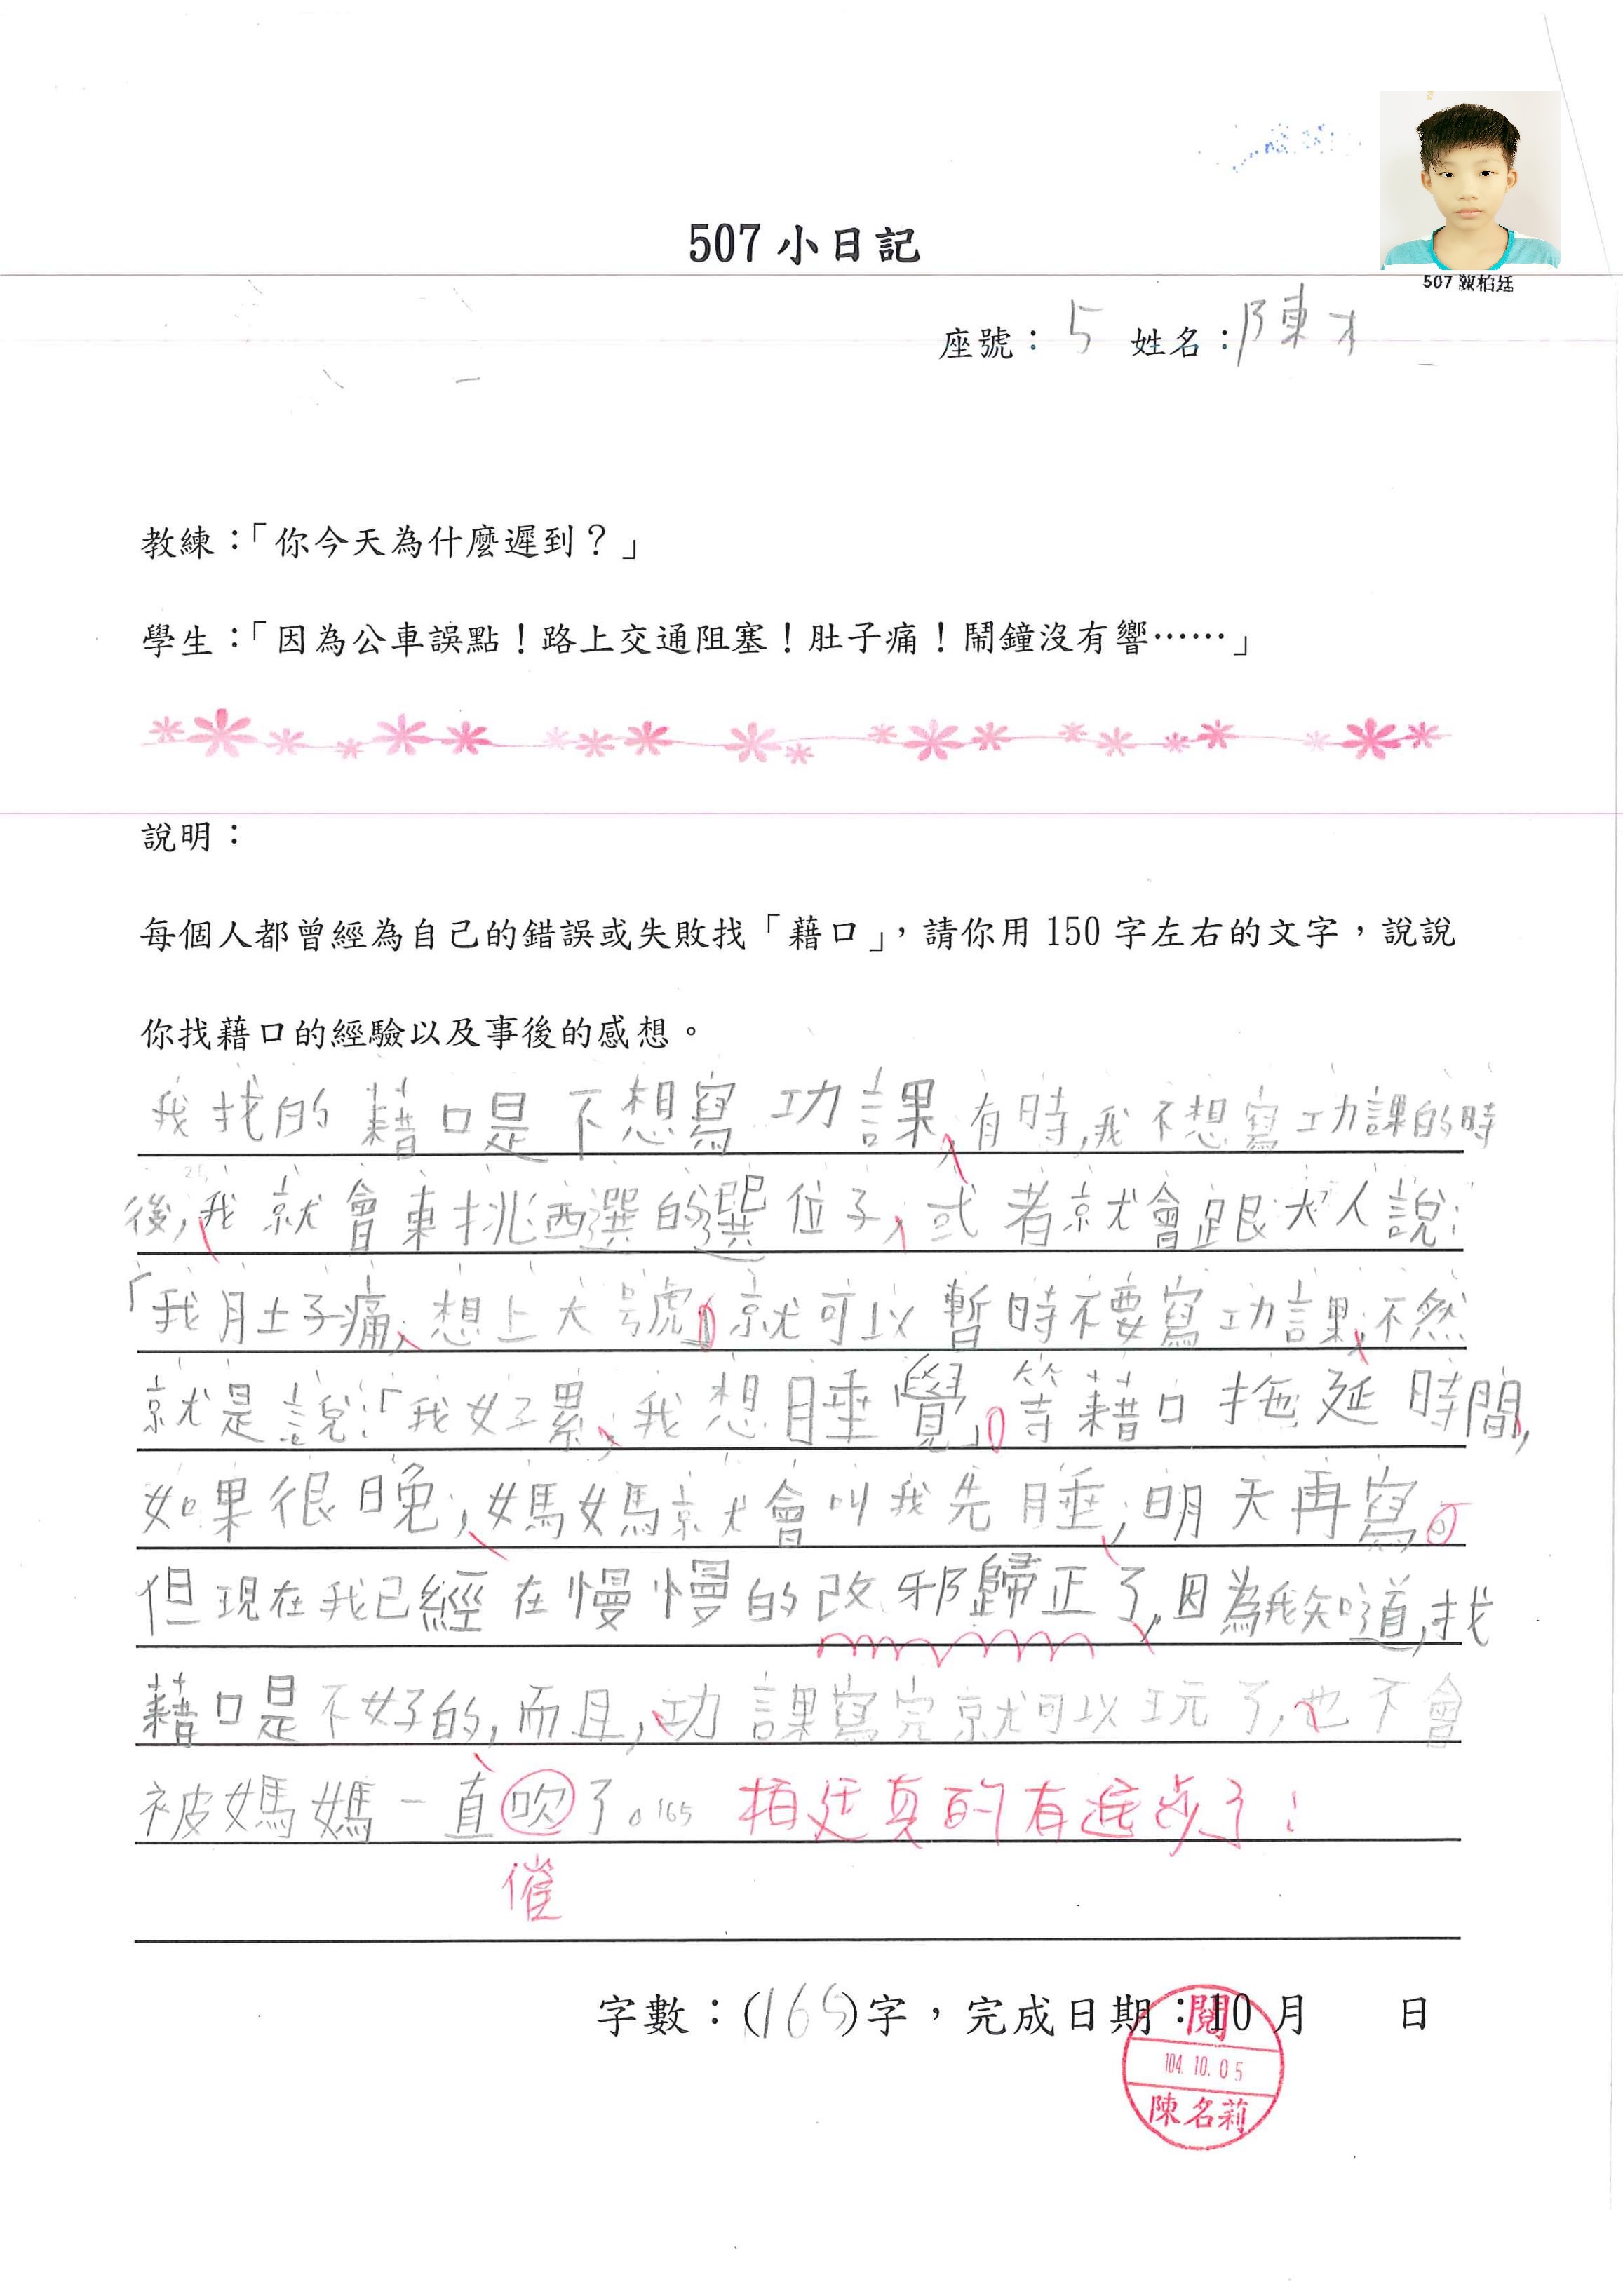 507 小日記
507 陳柏廷
座號：5 姓名：陳
教練：「你今天為什麼遲到？」
學生：「因為公車誤點！路上交通阻塞！肚子痛！鬧鐘沒有響……」
說明：
每個人都曾經為自己的錯誤或失敗找「藉口」，請你用 150 字左右的文字，說說
你找藉口的經驗以及事後的感想。
我找的藉口是不想寫功課,有時,我不想寫功課的時
後,我就會東挑西選的選位子,或者就會跟大人說:
「我肚子痛,想上大號」就可以暫時不要寫功課,不然
就是說:「我好累,我想睡覺」。等藉口拖延時間,
如果很晚,媽媽就會叫我先睡,明天再寫。
但現在我已經在慢慢的改邪歸正了,因為我知道,找
藉口是不好的,而且,功課寫完就可以玩了,也不會
被媽媽一直吹了。165 柏廷真的有進步了!
催
字數：(165)字，完成日期：10 月 日
閱
104.10.05
陳名莉